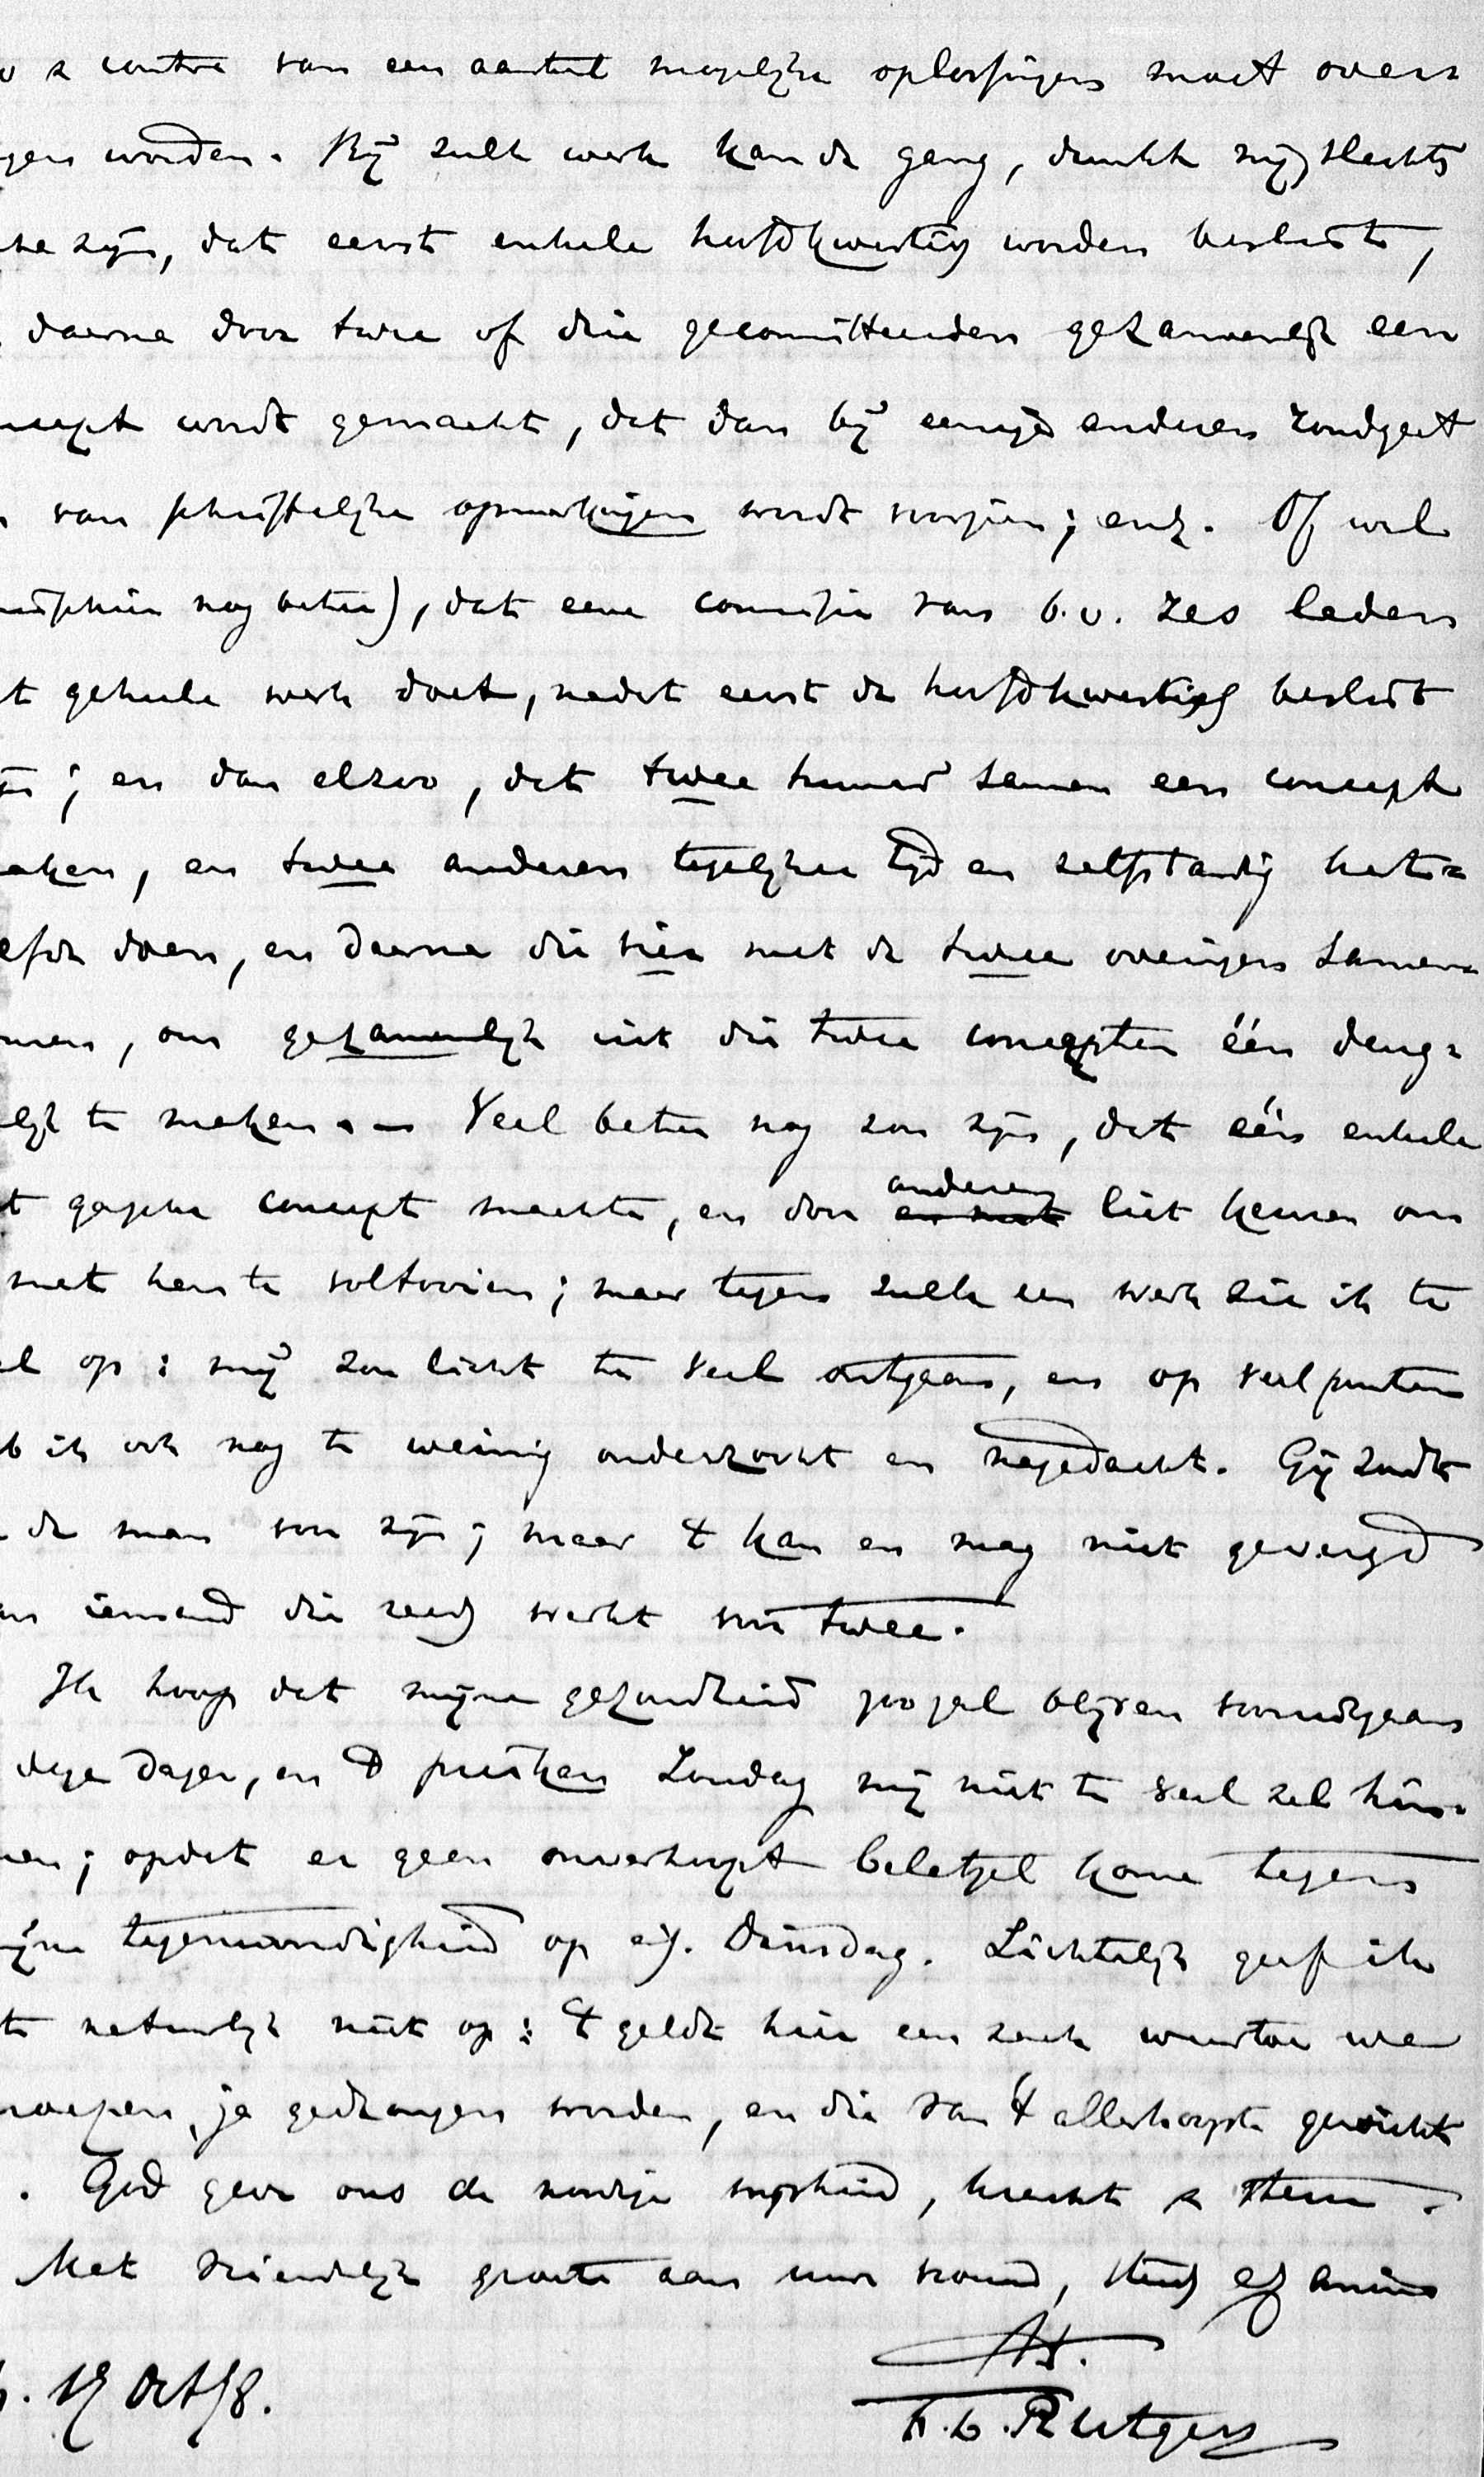 & contra van een aantal mogelijke oplossingen moet over=
gen worden. Bij zulk werk kan de gang, dunkt mij, slechts
ze zijn, dat eerst enkele hoofdkwestiën worden beslist,
daarna door twee of drie gecommitteerden gezamenlijk een
ncept wordt gemaakt, dat dan bij eenige anderen rondgaat
van schriftelijke opmerkingen wordt voorzien; enz. Of wel
misschien nog beter), dat eene commissie van b.v. zes leden
t geheele werk doet, nadat eerst de hoofdkwestiën beslist
; en dan alzoo, dat twee hunner samen een concept
aken, en twee anderen tegelijker tijd en zelfstandig het=
elfde doen, en daarna die vier met de twee overigen samen=
men, om gezamenlijk uit die twee concepten één deug=
elijk te maken. — Veel beter nog zou zijn, dat één enkele
t gansche concept maakte, en door anderen liet keuren om
met hen te voltooien; maar tegen zulk een werk zie ik te
el op: mij zou licht te veel ontgaan, en op veel punten
b ik ook nog te weinig onderzocht en nagedacht. Gij zoudt
de man voor zijn; maar 't kan en mag niet gevergd
an iemand die reeds werkt voor twee.
Ik hoop dat mijne gezondheid zoo zal blijven vooruitgaan
deze dagen, en 't preeken Zondag mij niet te veel zal hin=
en; opdat er geen onverhoopt beletsel kome tegen
ijne tegenwoordigheid op a.s. Dinsdag. Lichtelijk geef ik
te natuurlijk niet op: 't geldt hier een zaak waartoe we
roepen, ja gedrongen worden, en die van 't allerhoogste gewicht
. God geve ons de noodige wijsheid, kracht & steun.
Met vriendelijke groete aan uwe vrouw, steeds ex animo
tt.
F. L. Rutgers
. 19 Oct/8.